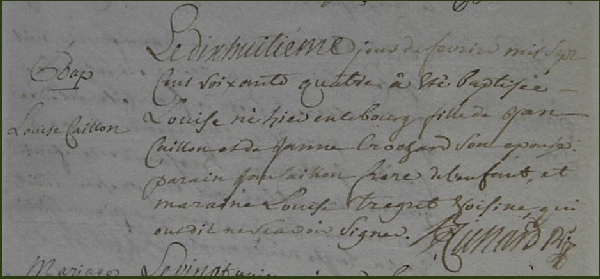 Le dixhuitiéme jour de fevrier mil sept
Bap
cens soixante quatre à été baptisée
Louise Caillon
Louise né hier en ce bourg fille de Jan
Caillon et de Janne Crochard son epouse.
parain Jan Caillon frere de l'enfant, et
maraine Louise Tregret voisine, qui
ont dit ne scavoir signer.
Mariage
Le vingt